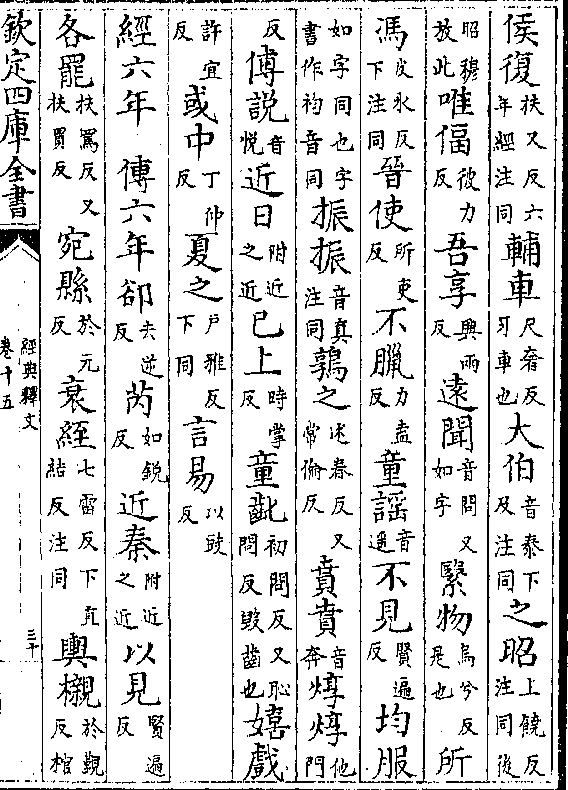 侯復扶又反六年經注同輔車尺奢反牙車也大伯音泰下及注同之昭上饒反注同後
昭穆放此唯偪彼力反吾享興兩反遠聞音問又如字繄物烏兮反是也所
馮皮氷反下注同晉使所吏反不臘力盍反童謡音遥不見賢遍反均服
如字同也字書作袀音同振振音真注同鶉之述春反又常倫反賁賁音奔焞焞他門
反傅說音悅近日附近之近已上時掌反童齔初問反又恥問反毀齒也嬉戲
許宜反或中丁仲反夏之戶雅反下同言易以豉反
經六年　傳六年郤去逆反芮如銳反近秦附近之近以見賢遍反
各罷扶罵反又扶買反宛縣於元反衰絰七雷反下直結反注同輿櫬於覲反棺
欽定四庫全書
經典釋文
卷十五
三十